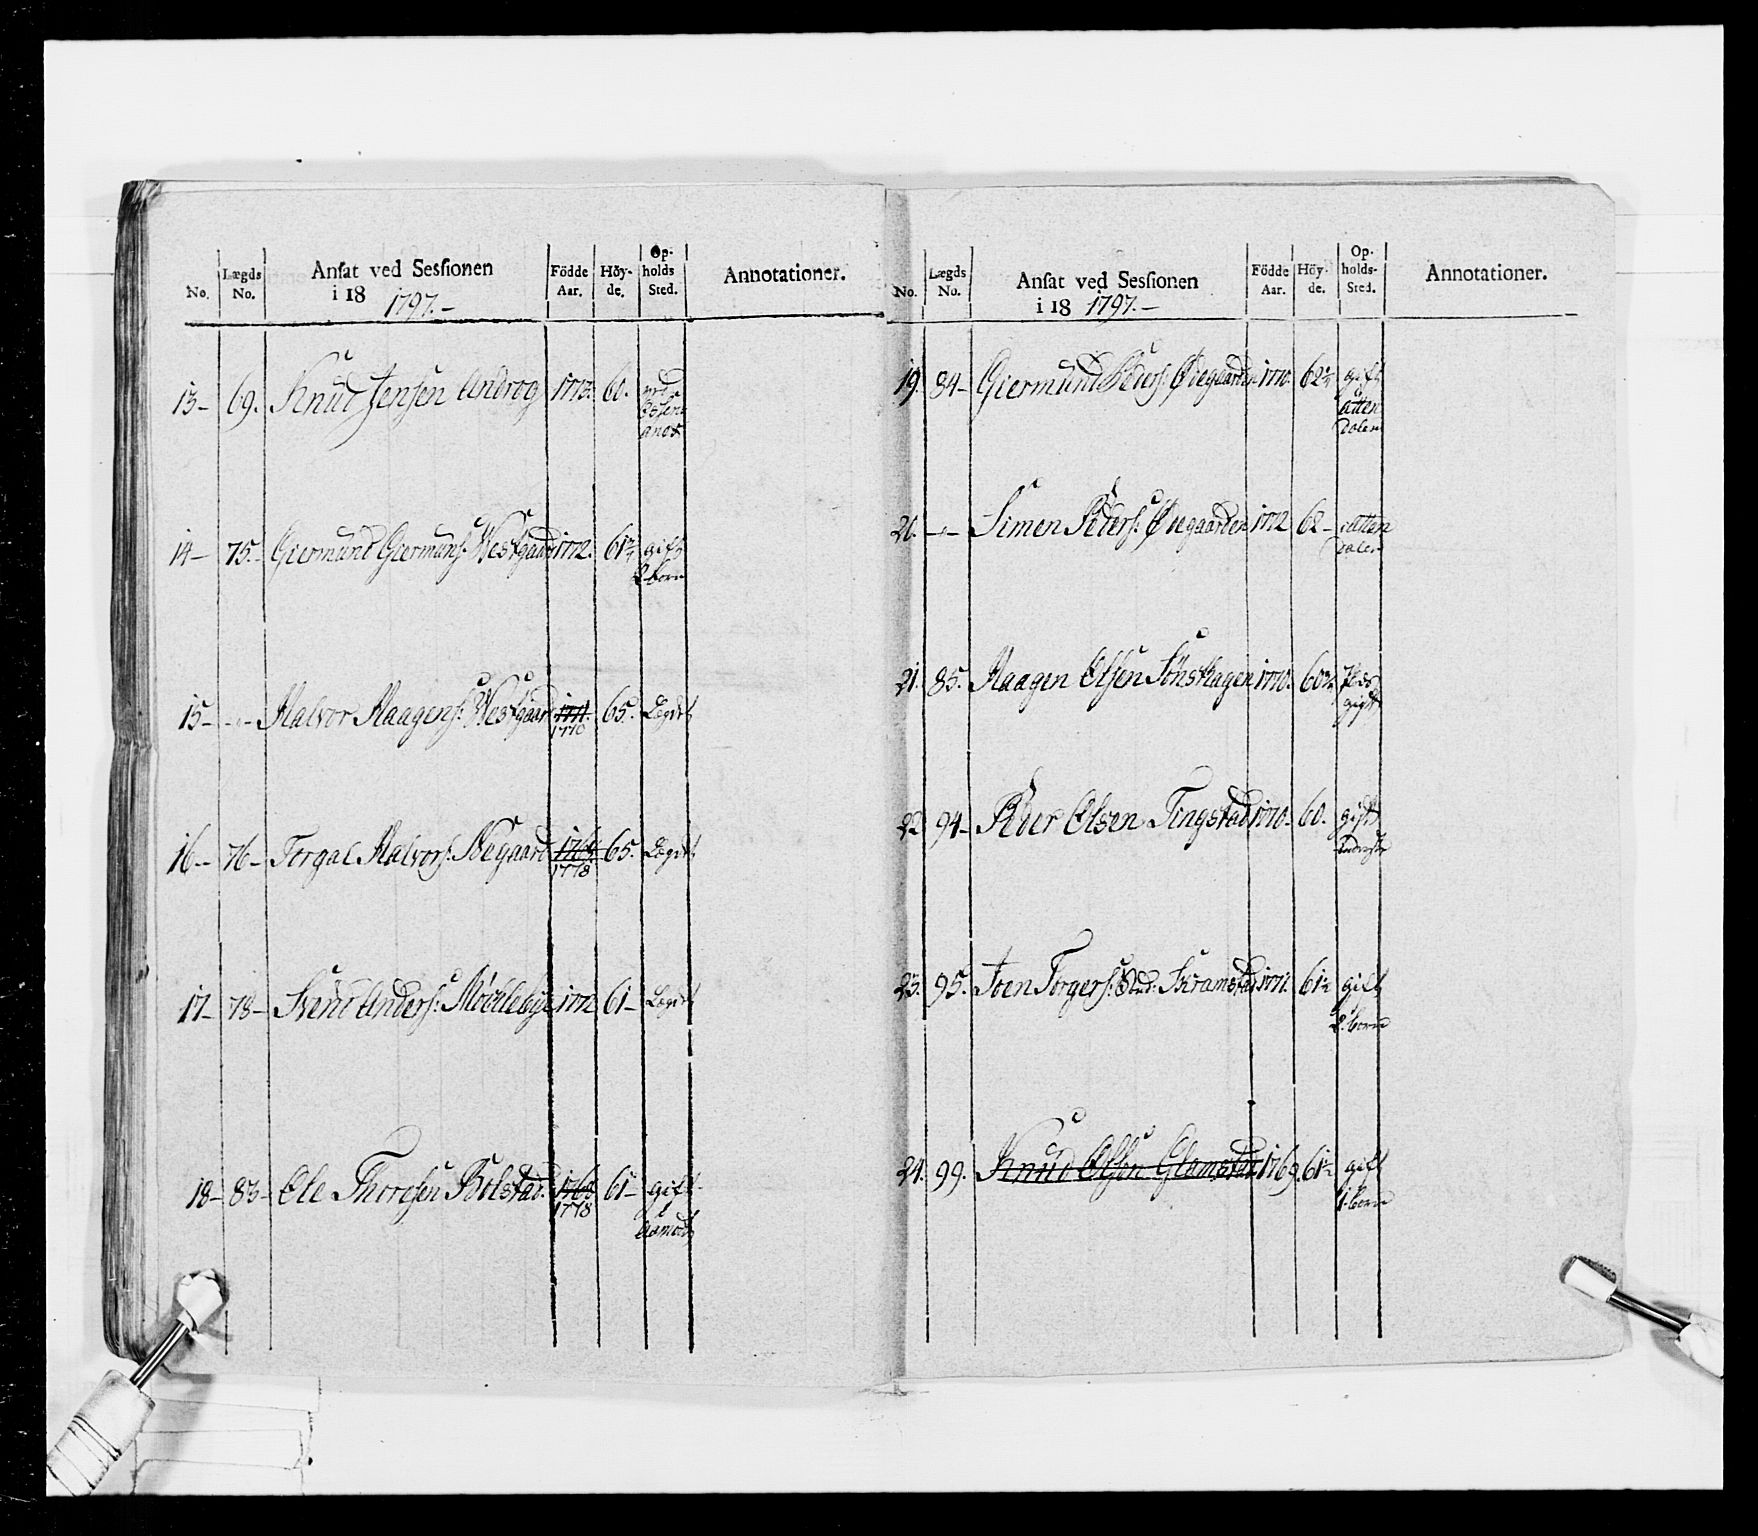 No.	Lægds No.	Ansat ved Sessionen i 18 1797.–	Födde Aar.	Höyde.	Opholds Sted.	Annotationer.
13–	69.	Knud Jensen Androg	1773.	60.
14–	75.–	Giermund Giermunds: Westgaard	1772.	61½	gift 2 born
15–	–"–	Halvor Haagens: Westgaard	1771. 1770	65.	Lægdet
16–	76–	Torgal Halvors: Neegaard	1769. 1778	65.	Lægdet
17–	78–	Svend Anders: Möcklebye	1772	61–	Lægdet
18–	83–	Ole Thoresen Bolstad.	1768 1778	61–	gift i Aamodt
No.	Lægds No.	Ansat ved Sessionen i 18 1797.–	Födde Aar.	Höyde.	Opholds-Sted.	Annotationer.
19.	84–	Giermund Peders: Ödegaarden	1770.	62½	gift Atten Dalen
20.	–"–	Simen Peders: Ödegaarden	1772	62–	Atten Dalen
21.	85.	Haagen Olsen Sönskagen	1770.	60¾	gift
22	94–	Peder Olsen Tingstad	1770.	60.	gift
23.	95.	Joen Torgers: Stud: Skramstad	1771.	61½	gift 2. born
24.	99.	Knud Olsen Glomstad	1769.	61½	gift 1. born